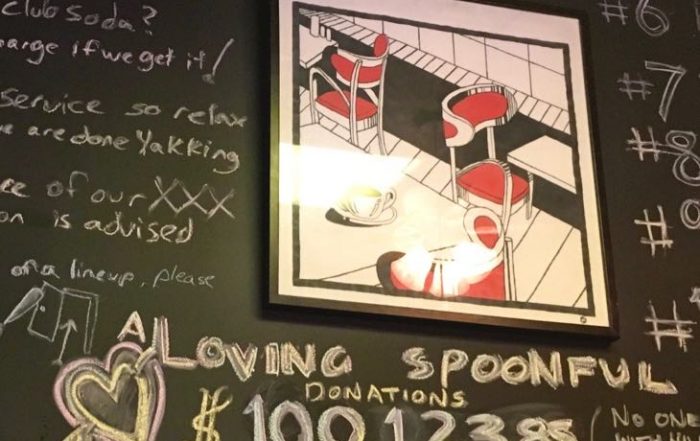 Club Soda?
arge if we get it!
service so relax
are done Yakking
ee of our XXX
on is advised
of a lineup, please
A LOVING SPOONFUL
DONATIONS
$100,123.85 (NO ONE
#6
#7
#8
#9
#